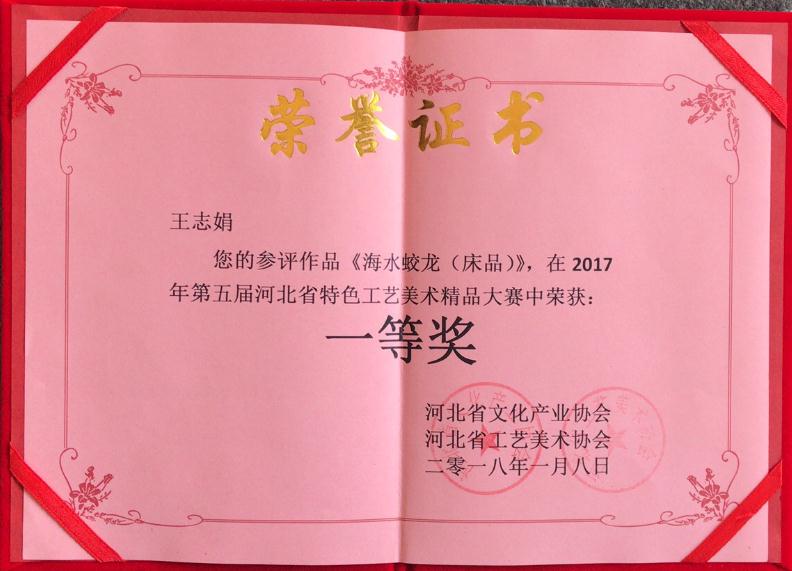 荣誉证书
王志娟
您的参评作品《海水蛟龙（床品）》，在 2017
年第五届河北省特色工艺美术精品大赛中荣获：
一等奖
河北省文化产业协会
河北省工艺美术协会
二零一八年一月八日